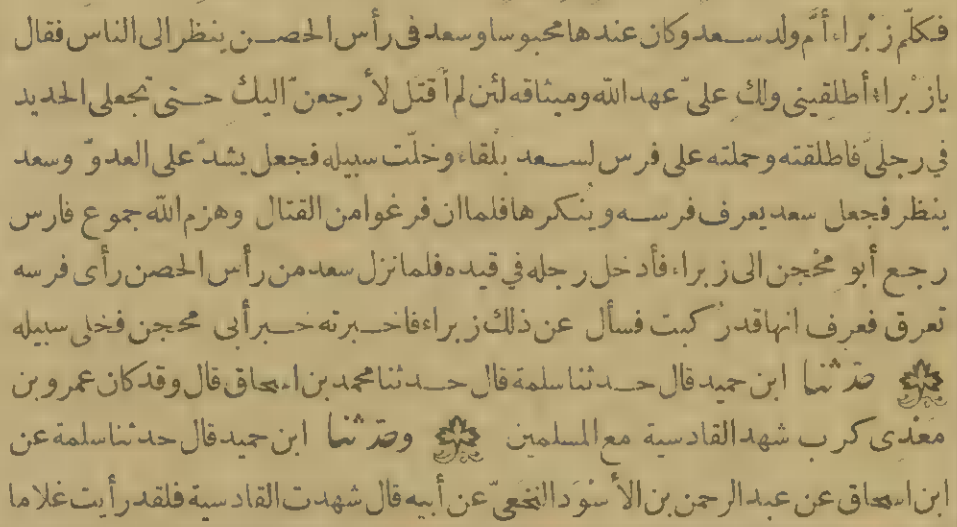 فكلّم زَبْراء أمّ ولد سعد وكان عندها محبوسا وسعد فى رأس الحصن ينظر الى الناس فقال
يازَبْراء أطلقينى ولك علىّ عهد الله وميثاقه لئن لم أُقتَل لأرجعنّ اليك حتى تجعلى الحديد
في رجلىّ فاطلقته وحملته على فرس لسعد بلقاء وخلّت سبيله فجعل يشدّ على العدوّ وسعد
ينظر فجعل سعد يعرف فرسه وينكرها فلما ان فرغوا من القتال وهزم الله جموع فارس
رجع أبو مِحْجن الى زبراء فأدخل رجله في قيده فلما نزل سعد من رأس الحصن رأى فرسه
تعرق فعرف انها قد رُكبت فسأل عن ذلك زبراء فاخبرته خبر أبى محجن فخلى سبيله
حدثنا ابن حميد قال حدثنا سلمة قال حدثنا محمد بن اسحاق قال وقد كان عمرو بن
مَعْدى كرب شهد القادسية مع المسلمين وحدثنا ابن حميد قال حدثنا سلمة عن
ابن اسحاق عن عبد الرحمن بن الأسْوَد النَخَعىّ عن أبيه قال شهدت القادسية فلقد رأيت غلاما